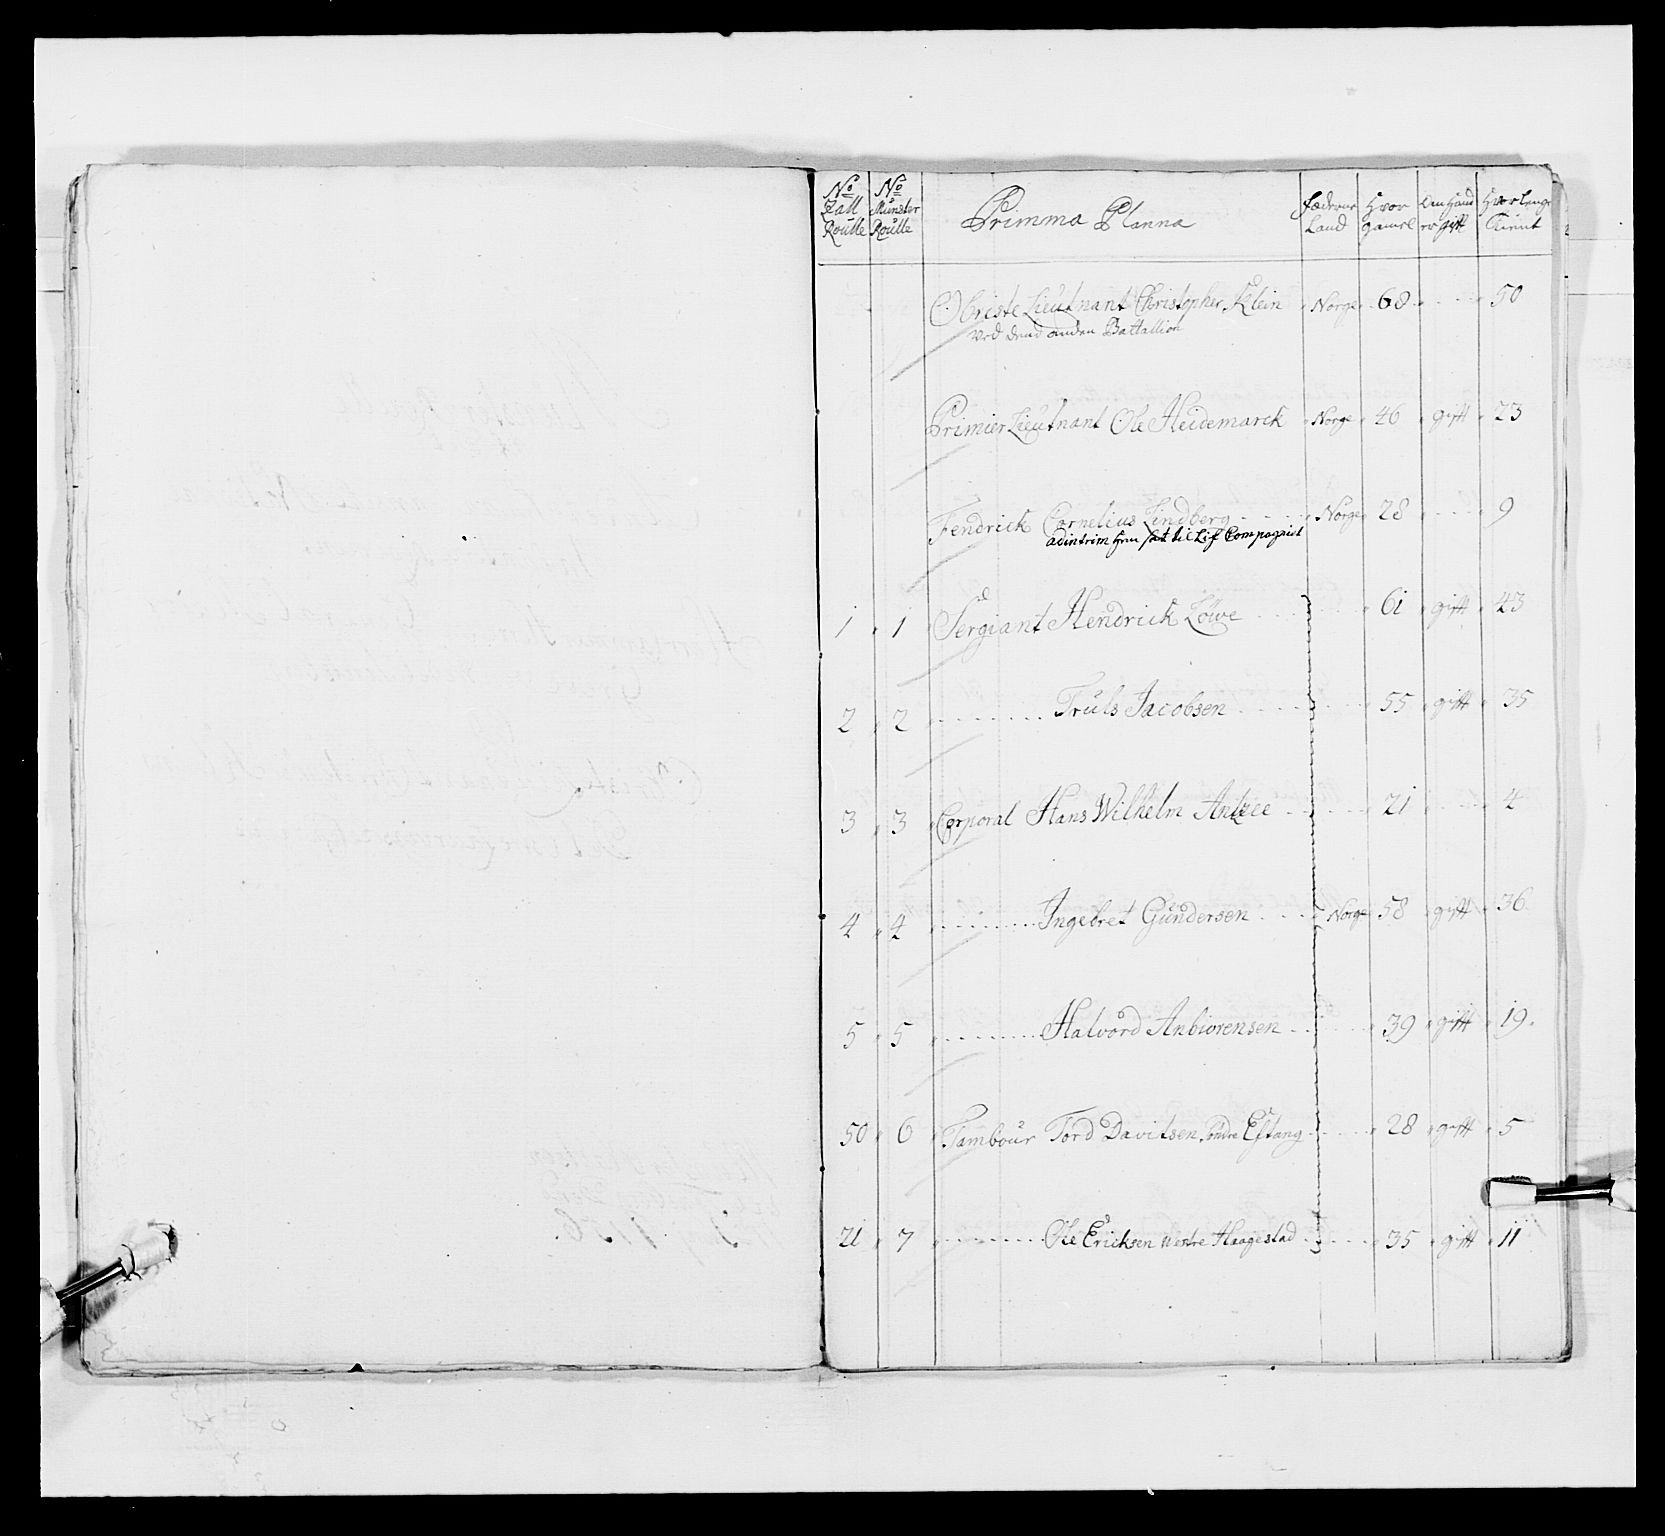 No Zall Roulle | No Münster Roulle | Primma Planna | Fæderne Land | Hvor gamel | Om Hand er gift | Hvor lenge tient
Obriste Lieutnant Christopher Klein | Norge | 68 | | 50
ved dend anden Battallion
Primier Lieutnant Ole Heidemarck | Norge | 46 | gift | 23
Fendrick Cornelius Lindberg | Norge | 28 | | 9
til Lif Compagniet
1 | 1 | Sergiant Hendrick Löwe | | 61 | gift | 43
2 | 2 | Truls Jacobsen | | 55 | gift | 35
3 | 3 | Corporal Hans Wilhelm | | 21 | | 4
4 | 4 | Ingebret Gündersen | Norge | 58 | gift | 36
5 | 5 | Halvord Anbiørensen | | 39 | gift | 19
50 | 6 | Tambour Tord Davitsen Søndre Estang | | 28 | gift | 5
21 | 7 | Ole Ericksen Westre Haagestad | | 35 | gift | 11